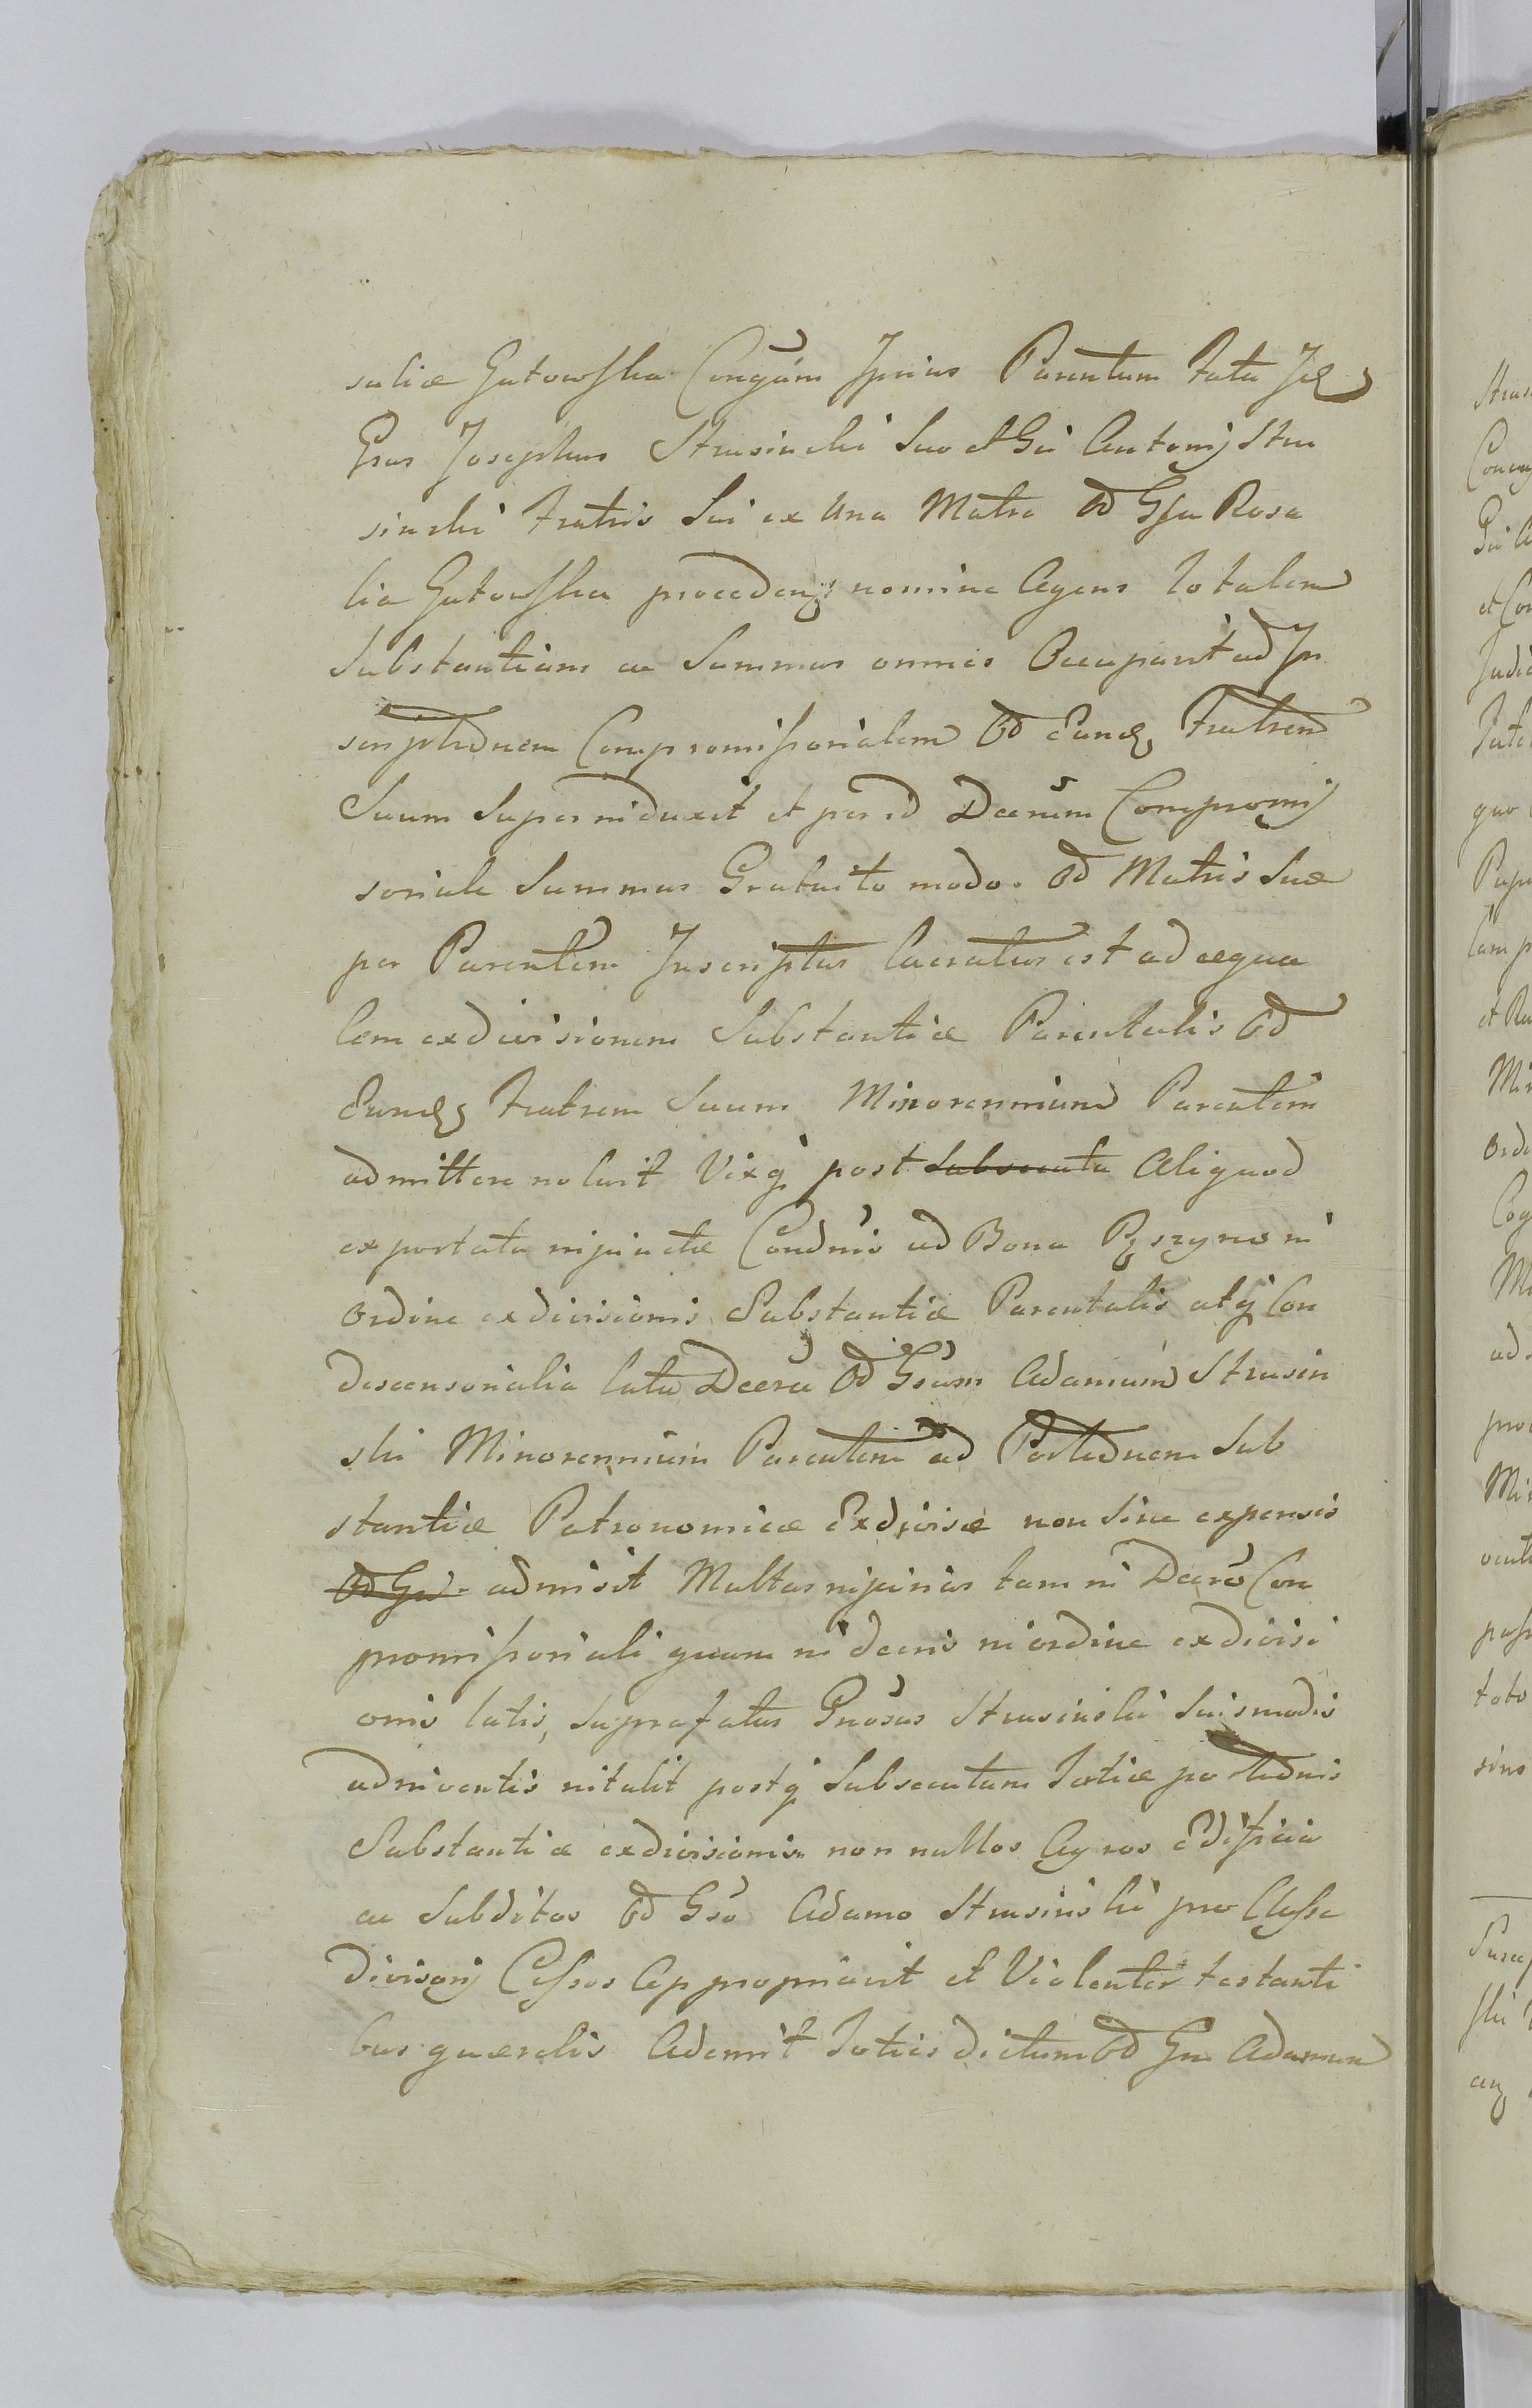 saliæ Gutowska Congũm Ipsius Parentum Fata Id
Gsus Josephus Strusinski Suo et Gsi Antonij Stru
sinski Fratris Sui ex Una Matre Od Gsa Rosa
lia Gutowska procedens nomine Agens Totalem
Substantiam ac Summas omnes Occupavit ad In
scriptionem Compromissorialem Od Eund Fratrem
Suum Superinduxit et per id Decrum Compromis
soriale Summas Gratuito modo. Od Matris Suæ
per Parentem Inscriptas lucratus est ad æqua
lem exdivisionem Substantiæ Parentalis Od
Eund Fratrem Suum Minorennium Parentem
admittere noluit Vixq post Subsecuta Aliquod
exportata in juncta Condnis ad Bona ni
Ordine exdivisionis Substantiæ Parentalis atq Con
descensorialia lata Decra Od Gsum Adamum Strusin
ski Minorennium Parentem ad Portionem Sub
stantiæ Patronomicæ Exdivisæ non Sine expensis
Od Gsu admisit Multas injurias tam in Decro Com
promissoriali quam in decris in ordine exdivisi
onis latis, Suprafatus Gnosus Strusinski Suis modis
adinventis intulit postq Subsecutam Toties portionis
Substantiæ exdivisionis non nullos Agros Edificia
ac Subditos Od Gso Adamo Strusinski pro Classe
divisorij Cessos Appropriavit et Violenter testanti
bus querelis Ademit Toties dictum Od Gsu Adamum